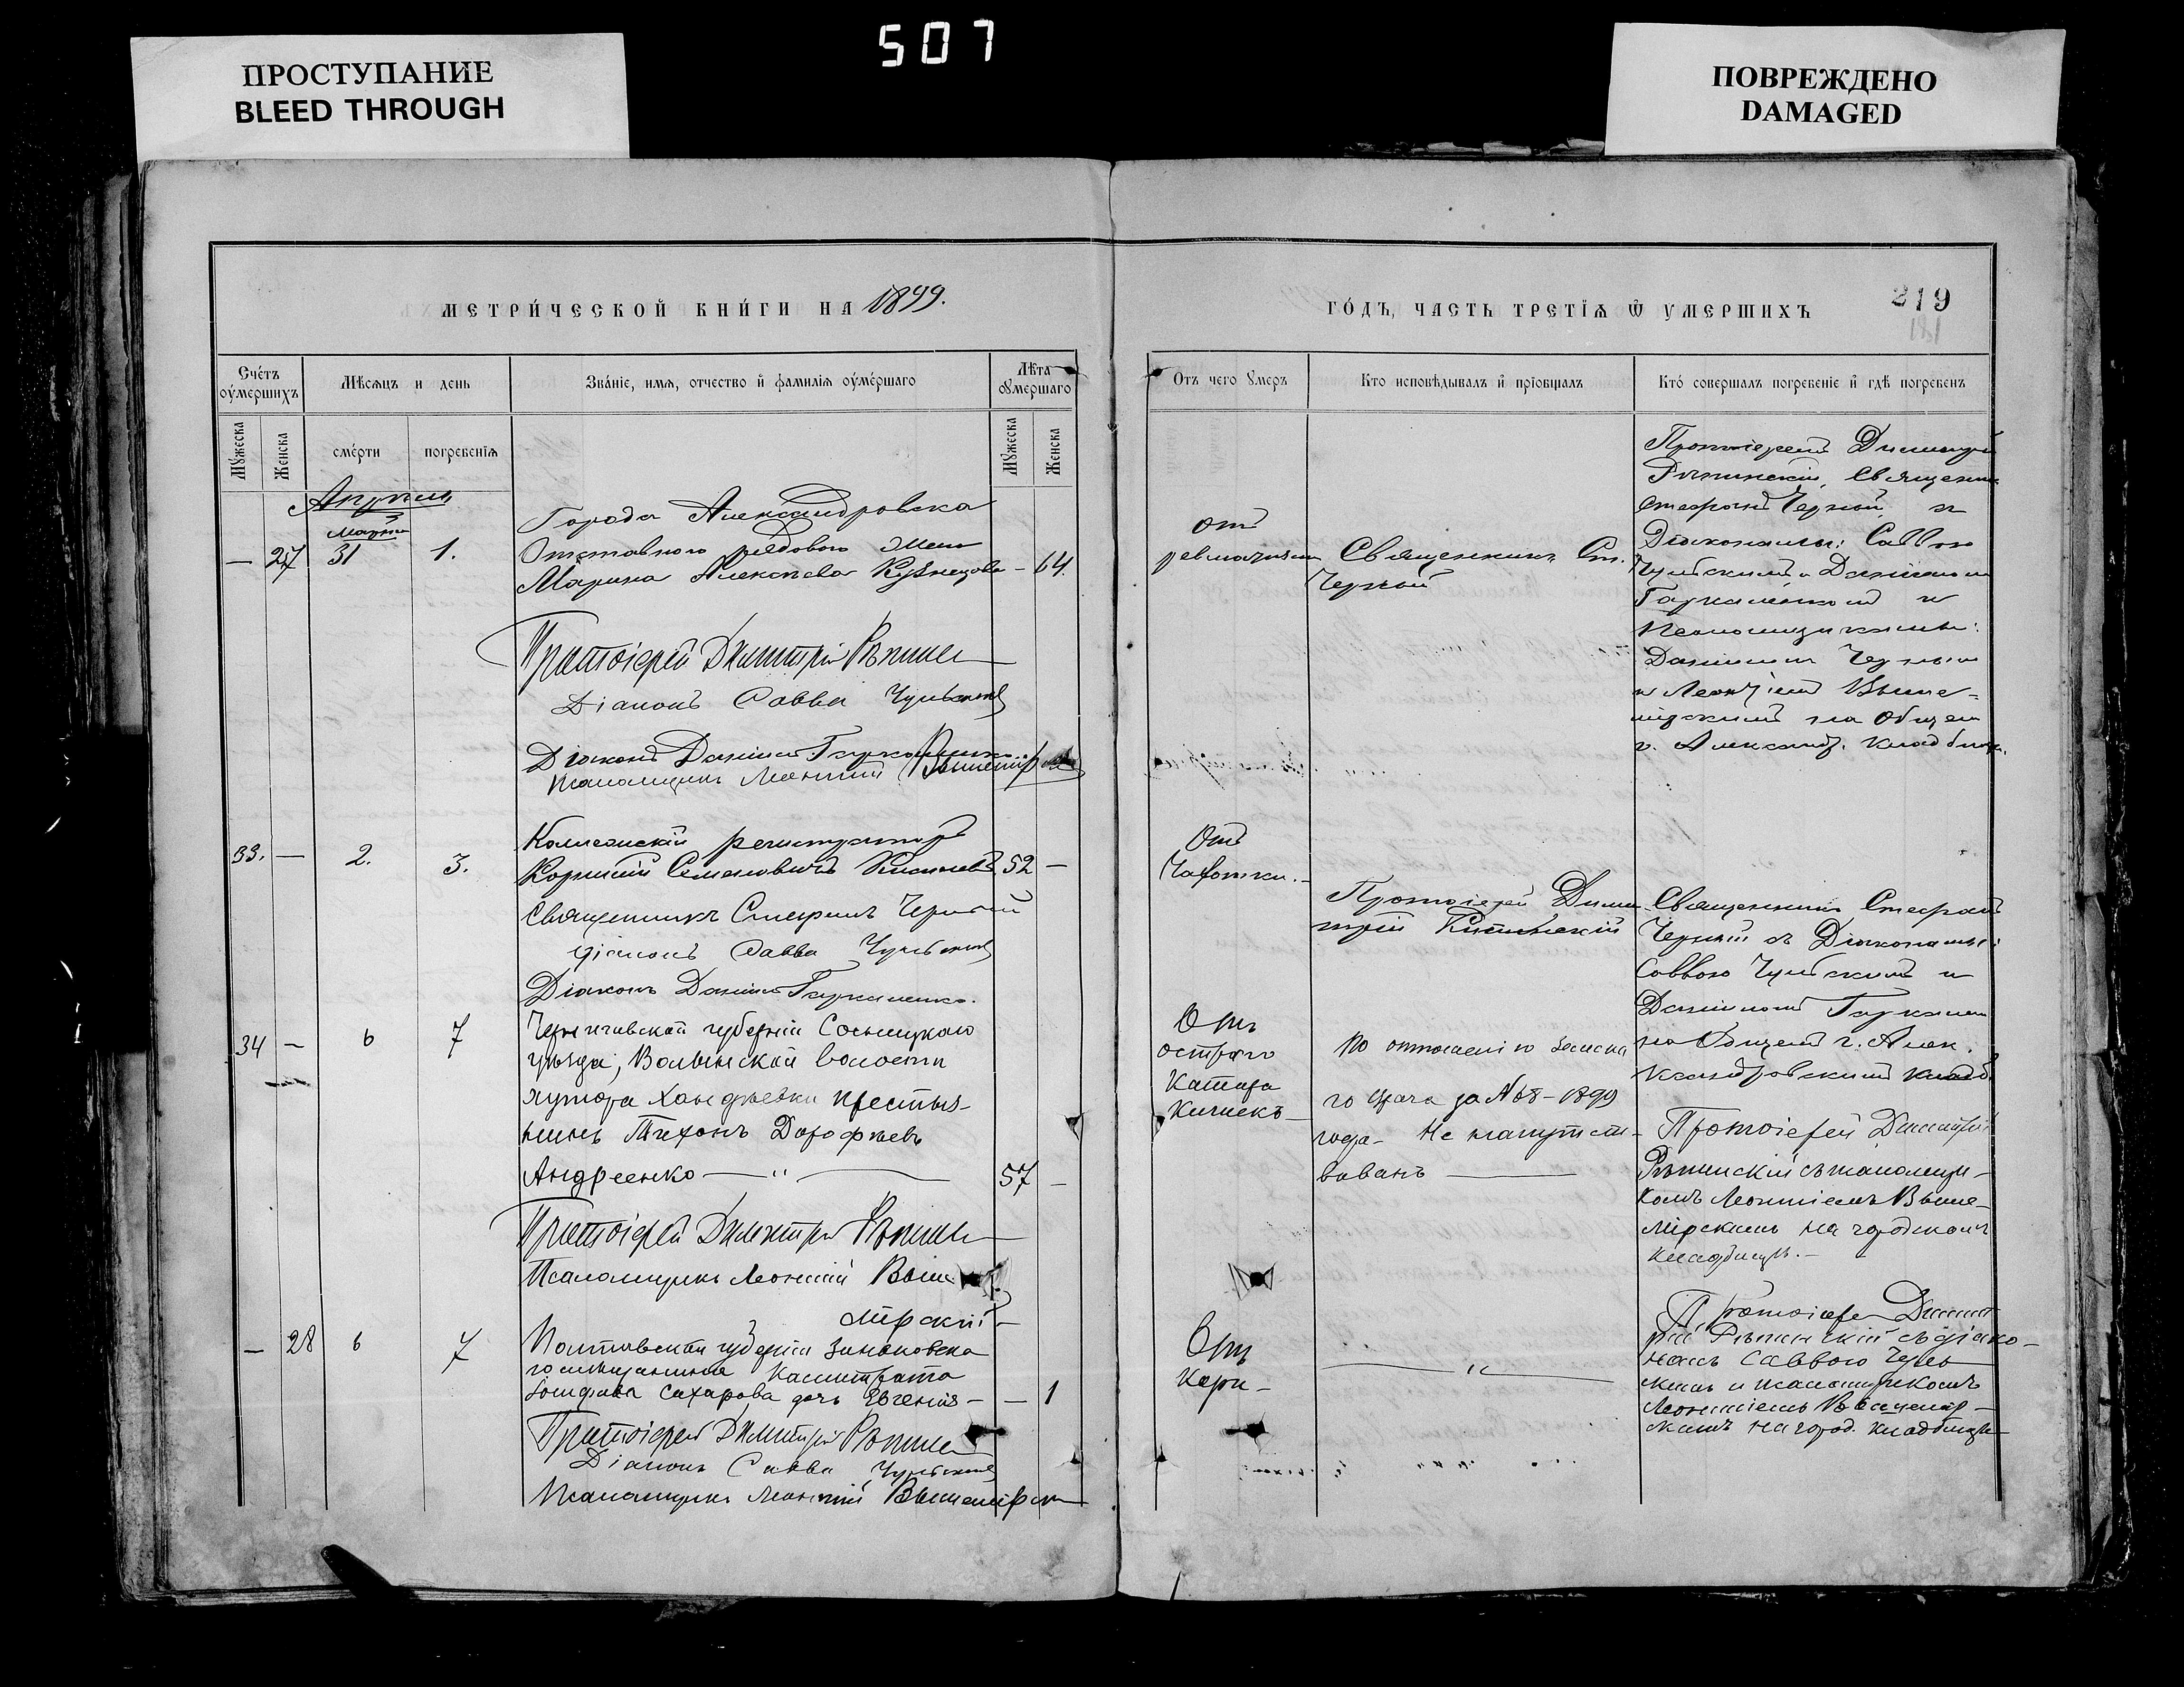 507
ПРОСТУПАНИЕ
BLEED THROUGH
ПОВРЕЖДЕНО
DAMAGED
МЕТРИ́ЧЕСКОЙ КНИ́ГИ НА 1899.
ГО́ДЪ, ЧАСТЬ ТРЕТІѦ Ѿ УМЕРШИХЪ
219
Сче́тъ оу҆́мершихъ
Мѣсѧцъ и день
Зва́ніе, имѧ, отчество и҆ фамиліѧ оу҆ме́ршаго
Лѣта оумершаго
Мꙋжеска
Женска
сме́рти
погребеніѧ
Мꙋжеска
Женска
Отъ чего ꙋмеръ
Кто исповѣдывалъ и҆ пріобщалъ
Кто́ совершалъ погребеніе и҆ гдѣ погребенъ
Апрѣль
Марта
— 27 31 1.
Города Александровска
Отставного рядового жена
Марина Алексѣева Кузнецова — 64.
Протоіерей Димитрій Рѣпинс
Діаконъ Савва Чульскій
Діаконъ Даніилъ Гаркаменко
Псаломщикъ Леонтій Вышемір
отъ
ревматизма
Священникъ Ст.
Черный
Протоіерей Димитрій
Рѣпинскій, Священник
Стефанъ Черный и
Діаконами: Саввою
Чульскимъ и Даніиломъ
и
Псаломщиками:
Данииломъ Чернымъ
и Леонтіемъ Выше-
мірскимъ на Общем
г. Александр. кладбищѣ.
33. — 2. 3.
Коллежскій регистраторъ
Семеновичъ 52 —
Священникъ Стефанъ Черный
Діаконъ Савва Чульскій
Діаконъ Даніилъ Гаркаменко.
Отъ
Чахотки.—
Протоіерей Дими
трій Рѣпинскій
Священникъ Стефанъ
Черный съ Діаконами:
Саввою Чульскимъ и
Даніиломъ
на Общемъ г. Алек
сандровскимъ кладб.
34 — 6 7
Черниговской губерніи Сосницкаго
уѣзда, Волынской волости
хутора крестья-
нинъ Тихонъ Дорофѣевъ
Андреенко — " — 57 —
Протоіерей Димитрій Рѣпинс
Псаломщикъ Леонтій Выше
мірскій
Отъ
остраго
Катара
Кишекъ —
По отношенію земска
го врача за № 68 - 1899
года — Не напутство-
ванъ —
Протоіерей Димитрій
Рѣпинскій съ псаломщи-
комъ Леонтіемъ Выше-
мірскимъ на городскомъ
кладбищѣ.—
— 28 6 7
Полтавской губерніи Зиньковска
го мѣщанина
Сахарова дочь Евгенія — — 1
Протоіерей Димитрій Рѣпинс
Діаконъ Савва Чульскій
Псаломщикъ Леонтій Вышемірск
Отъ
Кори —
— " —
Протоіерей Димит
рій Рѣпинскій съ діако-
номъ Саввою Чуль
скимъ и псаломщикомъ
Леонтіемъ Вышемір-
скимъ на город. кладбищѣ—